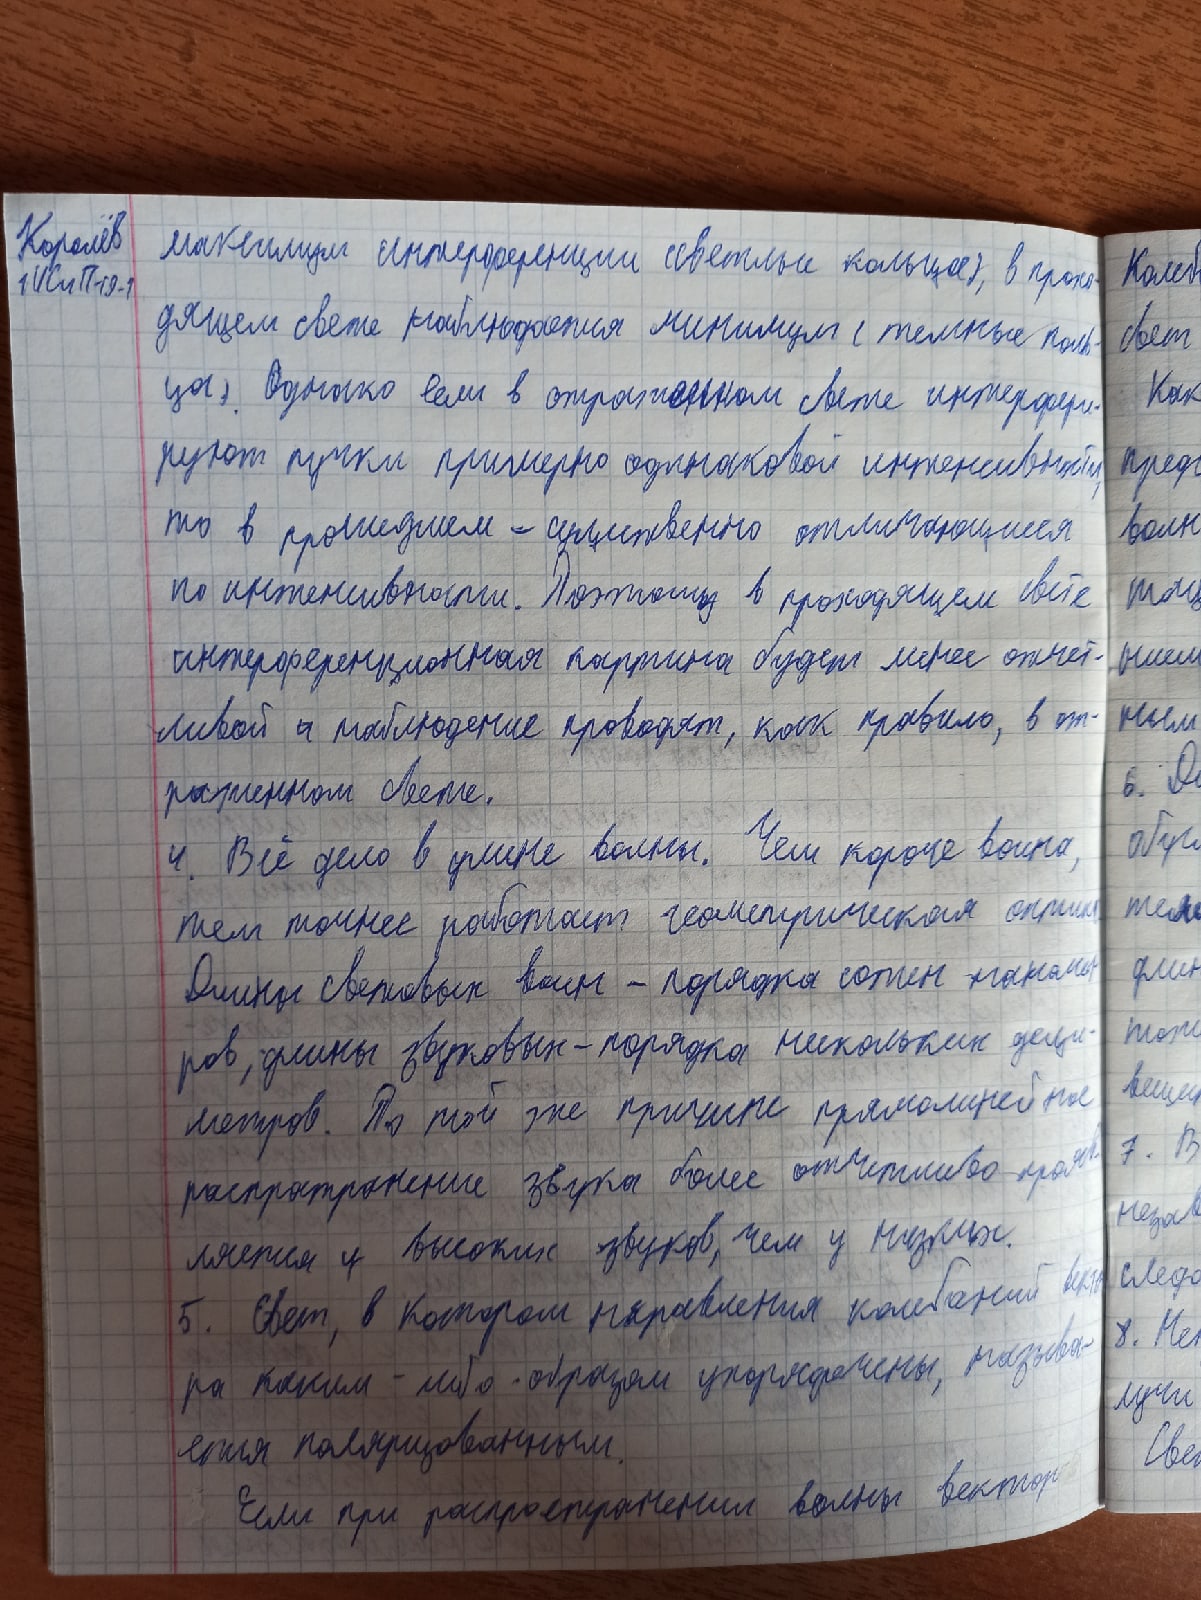 Королёв
1ИСиП-19-1
максимум интерференции (светлые кольца), в прохо-
дящем свете наблюдается минимум (темные коль-
ца). Однако если в отраженном свете интерфери-
руют пучки примерно одинаковой интенсивности,
то в прошедшем - существенно отличающиеся
по интенсивности. Поэтому в проходящем свете
интерференционная картина будет менее отчет-
ливой и наблюдение проводят, как правило, в от-
раженном свете.
4. Всё дело в длине волны. Чем короче волна,
тем точнее работает геометрическая оптика
Длины световых волн - порядка сотен наномет
ров, длины звуковых - порядка нескольких деци-
метров. По той же причине прямолинейное
распространение звука более отчетливо прояв-
ляется у высоких звуков, чем у низких.
5. Свет, в котором направления колебаний векто
ра каким-либо образом упорядочены, называ-
ется поляризованным.
Если при распространении волны вектор
Колеб
свет
Как
волн
ным
6.
7. В
незав
следо
8.
лучи
Све